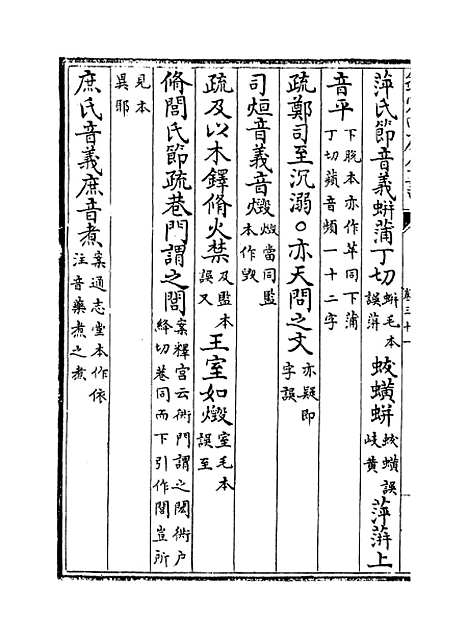 萍氏節音義蛢蒲丁切蛢毛本誤蓱蛂蟥蛢蛂蟥誤岐黄萍蓱上
音平下脫本亦作苹同下蒲丁切蘋音頻一十二字
疏鄭司至沉溺○亦天問之文亦疑即字誤
司烜音義音燬燬當同監本作毀
疏及以木鐸脩火禁及監本誤又王室如燬室毛本誤至
脩閭氏節疏巷門謂之閭案釋宫云衖門謂之閎衖户絳切巷同而下引作閭豈所
見本異耶
庶氏音義庶音煮案通志堂本作依注音藥煮之煮